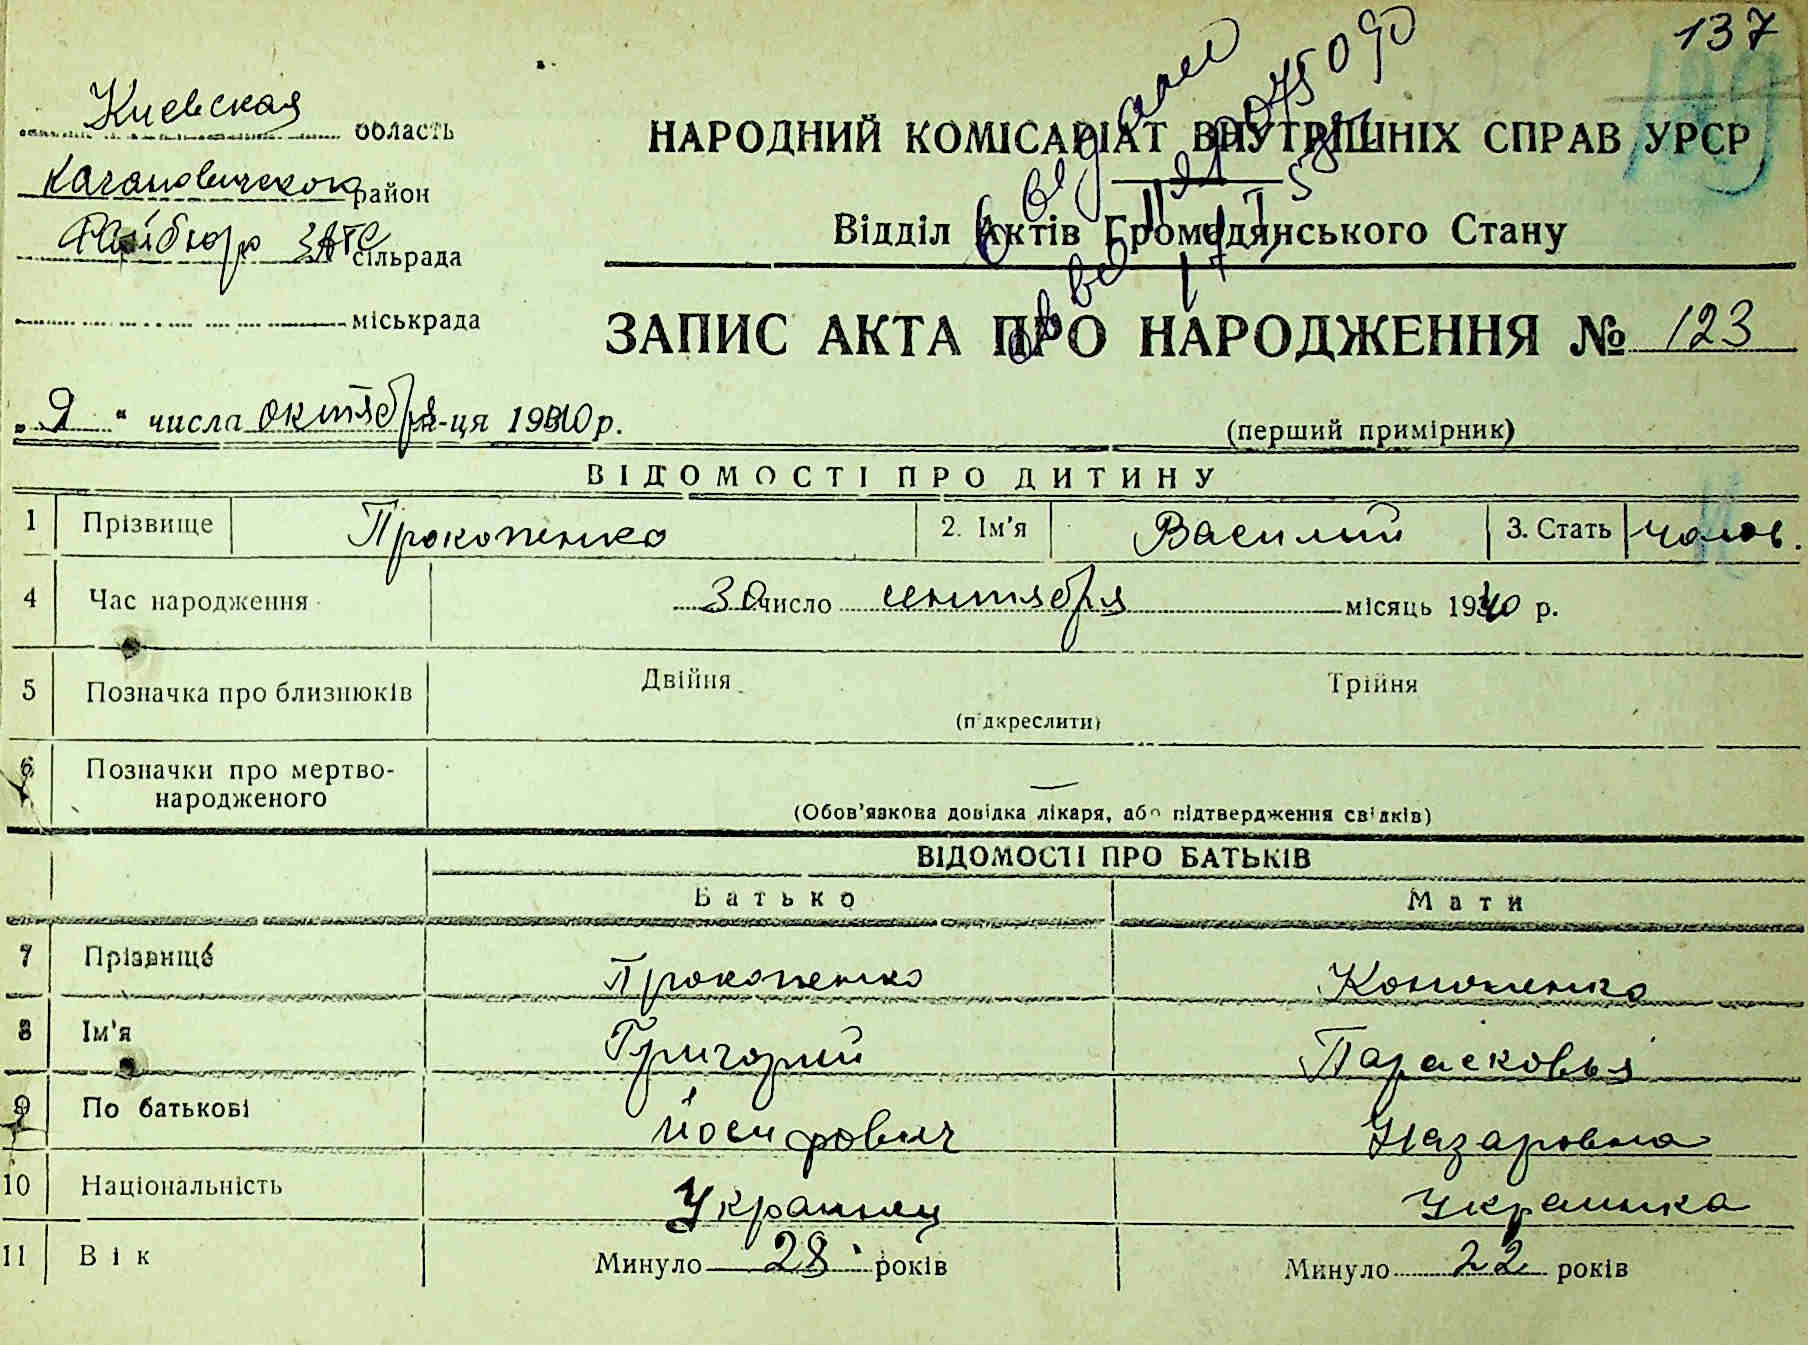 137
Киевская область
Кагановическою район
Райбюро ЗАГС сільрада
міськрада
НАРОДНИЙ КОМІСАРІАТ ВНУТРІШНІХ СПРАВ УРСР
Відділ Актів Громадянського Стану
ЗАПИС АКТА ПРО НАРОДЖЕННЯ № 123
числа октября м-ця 1940 р.
(перший примірник)
ВІДОМОСТІ ПРО ДИТИНУ
1 Прізвище Прокопенко 2. Ім'я Василий 3. Стать чолов.
4 Час народження 30 число сентября місяць 1940 р.
5 Позначка про близнюків Двійня Трійня
(підкреслити)
6 Позначки про мертво-
народженого
(Обов'язкова довідка лікаря, або підтвердження свідків)
ВІДОМОСТІ ПРО БАТЬКІВ
Батько Мати
7 Прізвище Прокопенко Кононенко
8 Ім'я Григорий Парасковья
9 По батькові Йосифович Назаровна
10 Національність Украинец Украинка
11 Вік Минуло 28 років Минуло 22 років